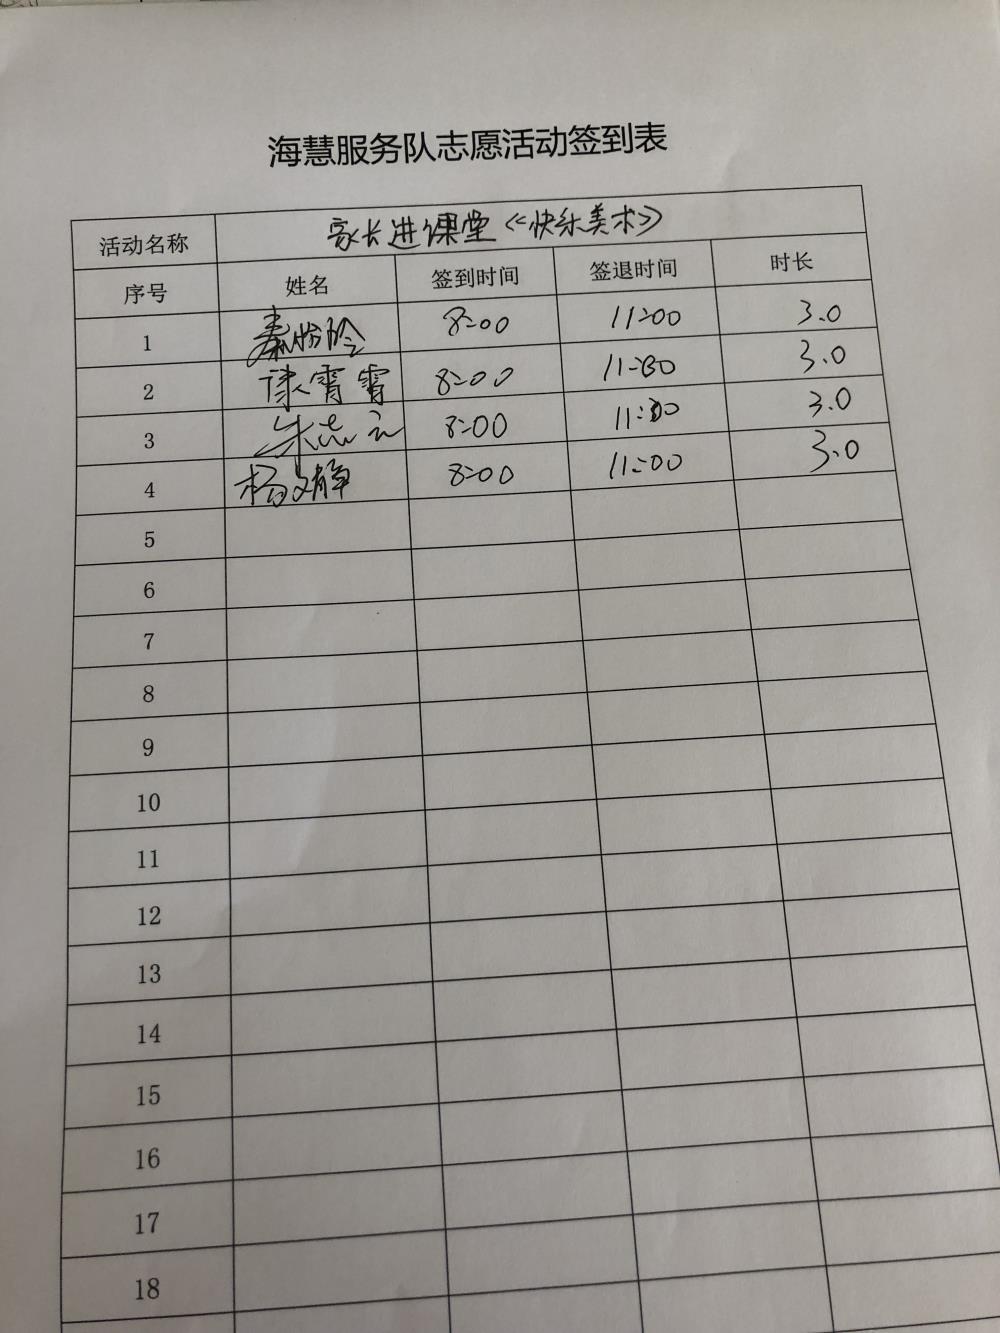 海慧服务队志愿活动签到表
活动名称 家长进课堂《快乐美术》
序号 姓名 签到时间 签退时间 时长
1 秦怡玲 8:00 11:00 3.0
2 康霄霄 8:00 11:00 3.0
3 朱志云 8:00 11:00 3.0
4 杨文静 8:00 11:00 3.0
5
6
7
8
9
10
11
12
13
14
15
16
17
18